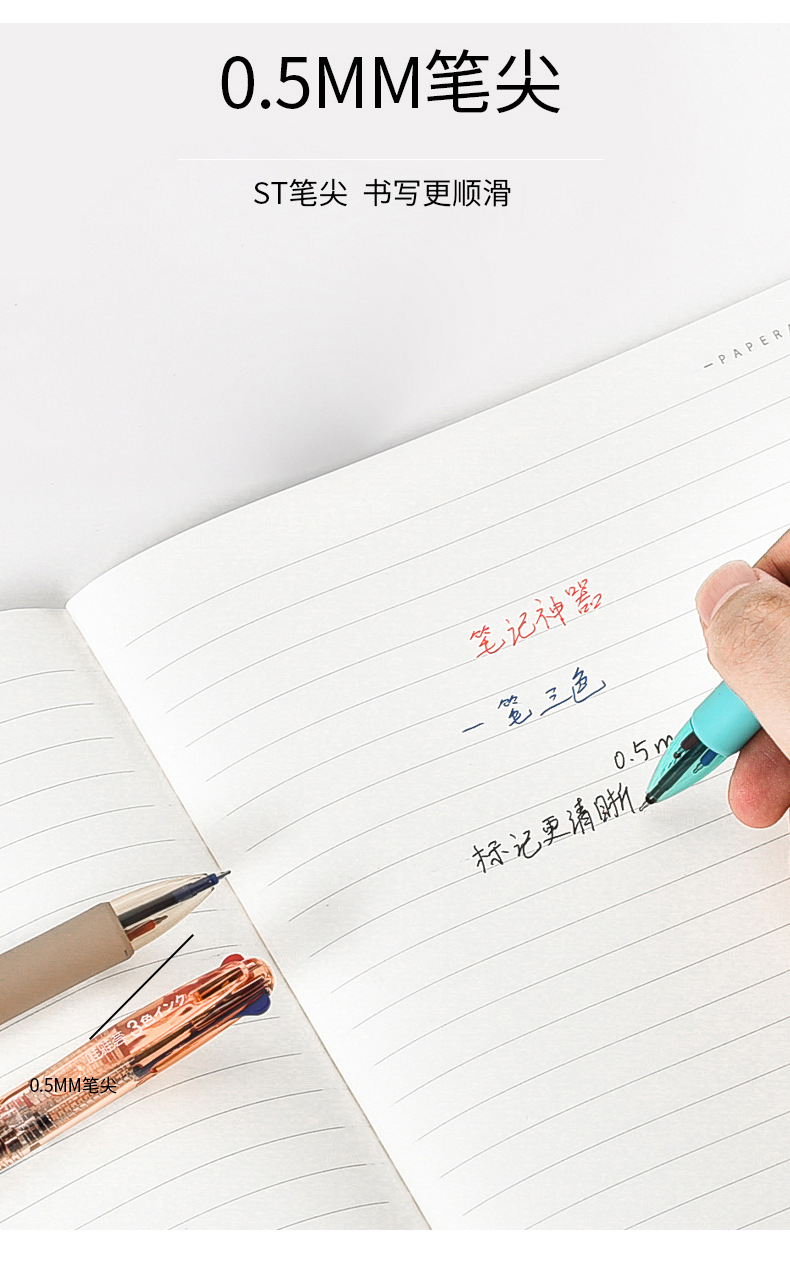 0.5MM笔尖
ST笔尖 书写更顺滑
—PAPERA
笔记神器
一笔三色
0.5m
标记更清晰
3色インク
0.5MM笔尖